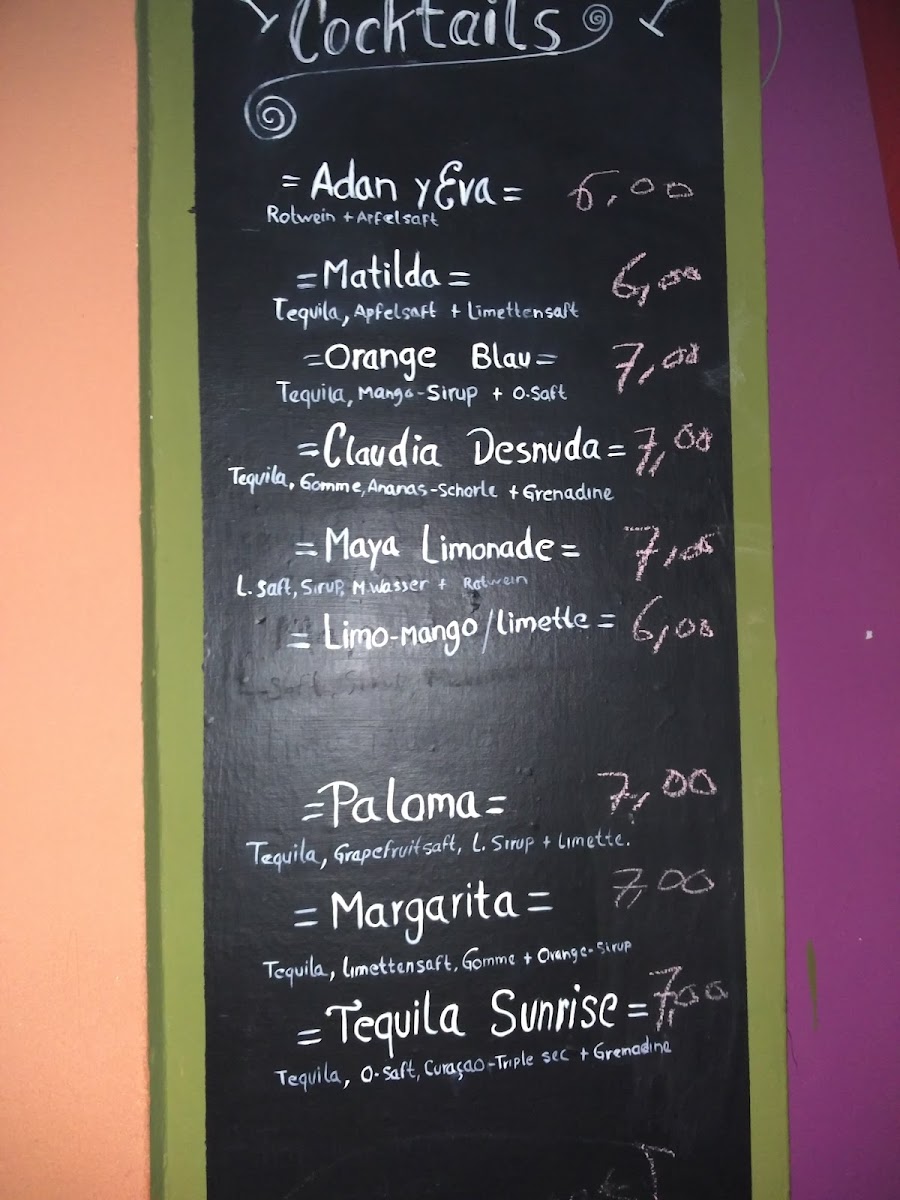 Cocktails
= Adan y Eva = 6,00
Rotwein + Apfelsaft
= Matilda = 6,00
Tequila, Apfelsaft + Limettensaft
= Orange Blau = 7,00
Tequila, Mango-Sirup + O.Saft
= Claudia Desnuda = 7,00
Tequila, Gomme, Ananas-Schorle + Grenadine
= Maya Limonade = 7,00
L. Saft, Sirup, M.wasser + Rotwein
= Limo-mango/limette = 6,00
= Paloma = 7,00
Tequila, Grapefruitsaft, L. Sirup + Limette.
= Margarita = 7,00
Tequila, Limettensaft, Gomme + Orange-Sirup
= Tequila Sunrise = 7,00
Tequila, O-Saft, Curaçao-Triple sec + Grenadine